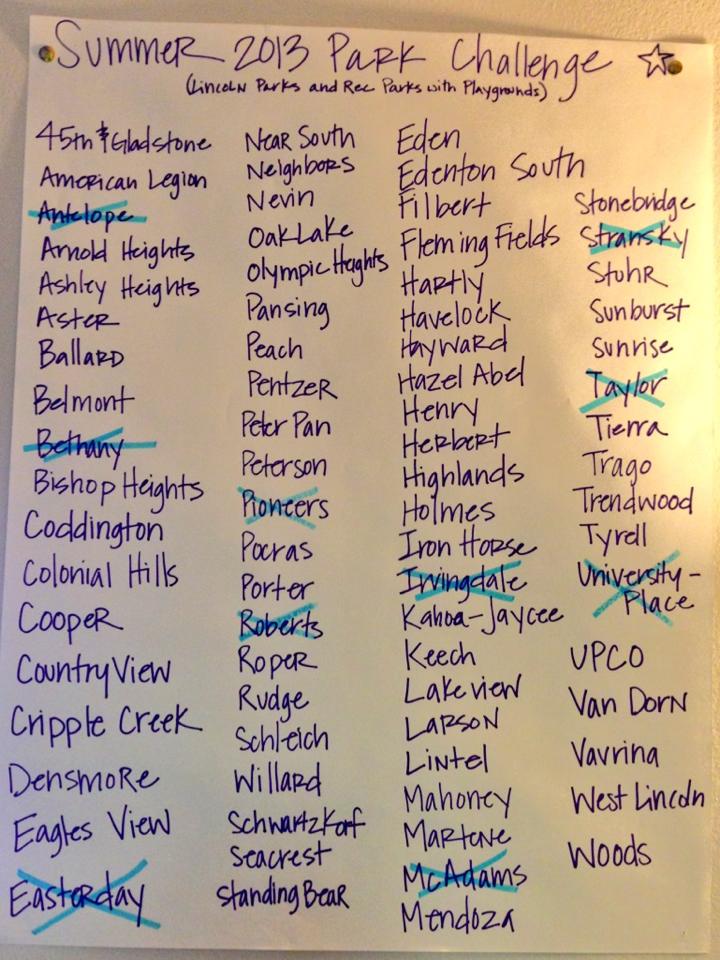 Summer 2013 Park Challenge
(Lincoln Parks and Rec Parks with Playgrounds)
45th & Gladstone
American Legion
Antelope
Arnold Heights
Ashley Heights
Aster
Ballard
Belmont
Bethany
Bishop Heights
Coddington
Colonial Hills
Cooper
Country View
Cripple Creek
Densmore
Eagles View
Easterday
Near South
Neighbors
Nevin
Oak Lake
Olympic Heights
Pansing
Peach
Pentzer
Peter Pan
Peterson
Pioneers
Pocras
Porter
Roberts
Roper
Rudge
Schleich
Willard
Schwartzkopf
Seacrest
Standing Bear
Eden
Edenton South
Filbert
Fleming Fields
Hartly
Havelock
Hayward
Hazel Abel
Henry
Herbert
Highlands
Holmes
Iron Horse
Irvingdale
Kahoa-Jaycee
Keech
Lakeview
Larson
Lintel
Mahoney
Martene
McAdams
Mendoza
Stonebridge
Stransky
Stuhr
Sunburst
Sunrise
Taylor
Tierra
Trago
Trendwood
Tyrell
University-
Place
UPCO
Van Dorn
Vavrina
West Lincoln
Woods